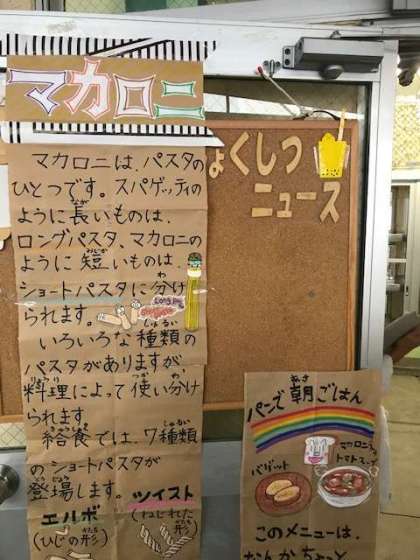 マカロニ
マカロニは、パスタの
ひとつです。スパゲッティの
ように長いものは、
ロングパスタ、マカロニの
ように短いものは、
ショートパスタに分け
られます。
いろいろな種類の
パスタがありますが、
料理によって使い分け
られます
給食では、7種類
のショートパスタが
登場します。
エルボ
(ひじの形)
ツイスト
(ねじれた
形)
ょくしつ
ニュース
パンで朝ごはん
マカロニ
トマトス
バゲット
このメニューは、